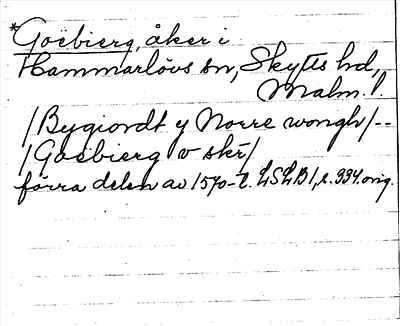 *Goëbierg, åker i
Hammarlövs sn, Skytts hd,
Malm. l.
/Bygiordt y Norre wongh/--
/Goëbierg v skr/
förra delen av 1570-t. LSLB1, s. 334 orig.